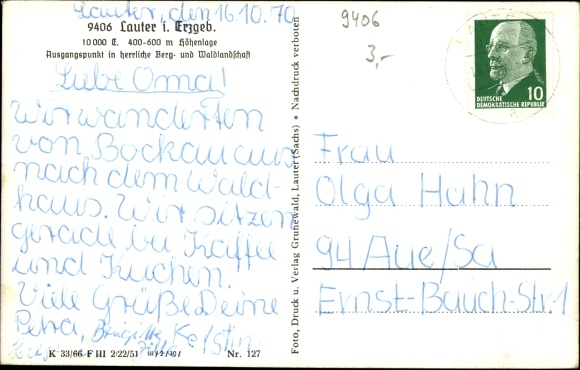 Lauter, den 16.10.70
9406 Lauter i. Erzgeb.
10 000 E. 400-600 m Höhenlage
Ausgangspunkt in herrliche Berg- und Waldlandschaft
Liebe Oma!
Wir wanderten
von Bockau aus
nach dem Wald-
haus. Wir sitzen
gerade bei Kaffee
und Kuchen.
Viele Grüße Deine
Petra, Brigitte, Kerstin
K 33/66 F III 2/22/51 III/2/10/ Nr. 127
Foto, Druck u. Verlag Grunewald, Lauter (Sachs) • Nachdruck verboten
9406
3,-
10
DEUTSCHE
DEMOKRATISCHE REPUBLIK
Frau
Olga Hahn
94 Aue/Sa
Ernst-Bauch-Str.1